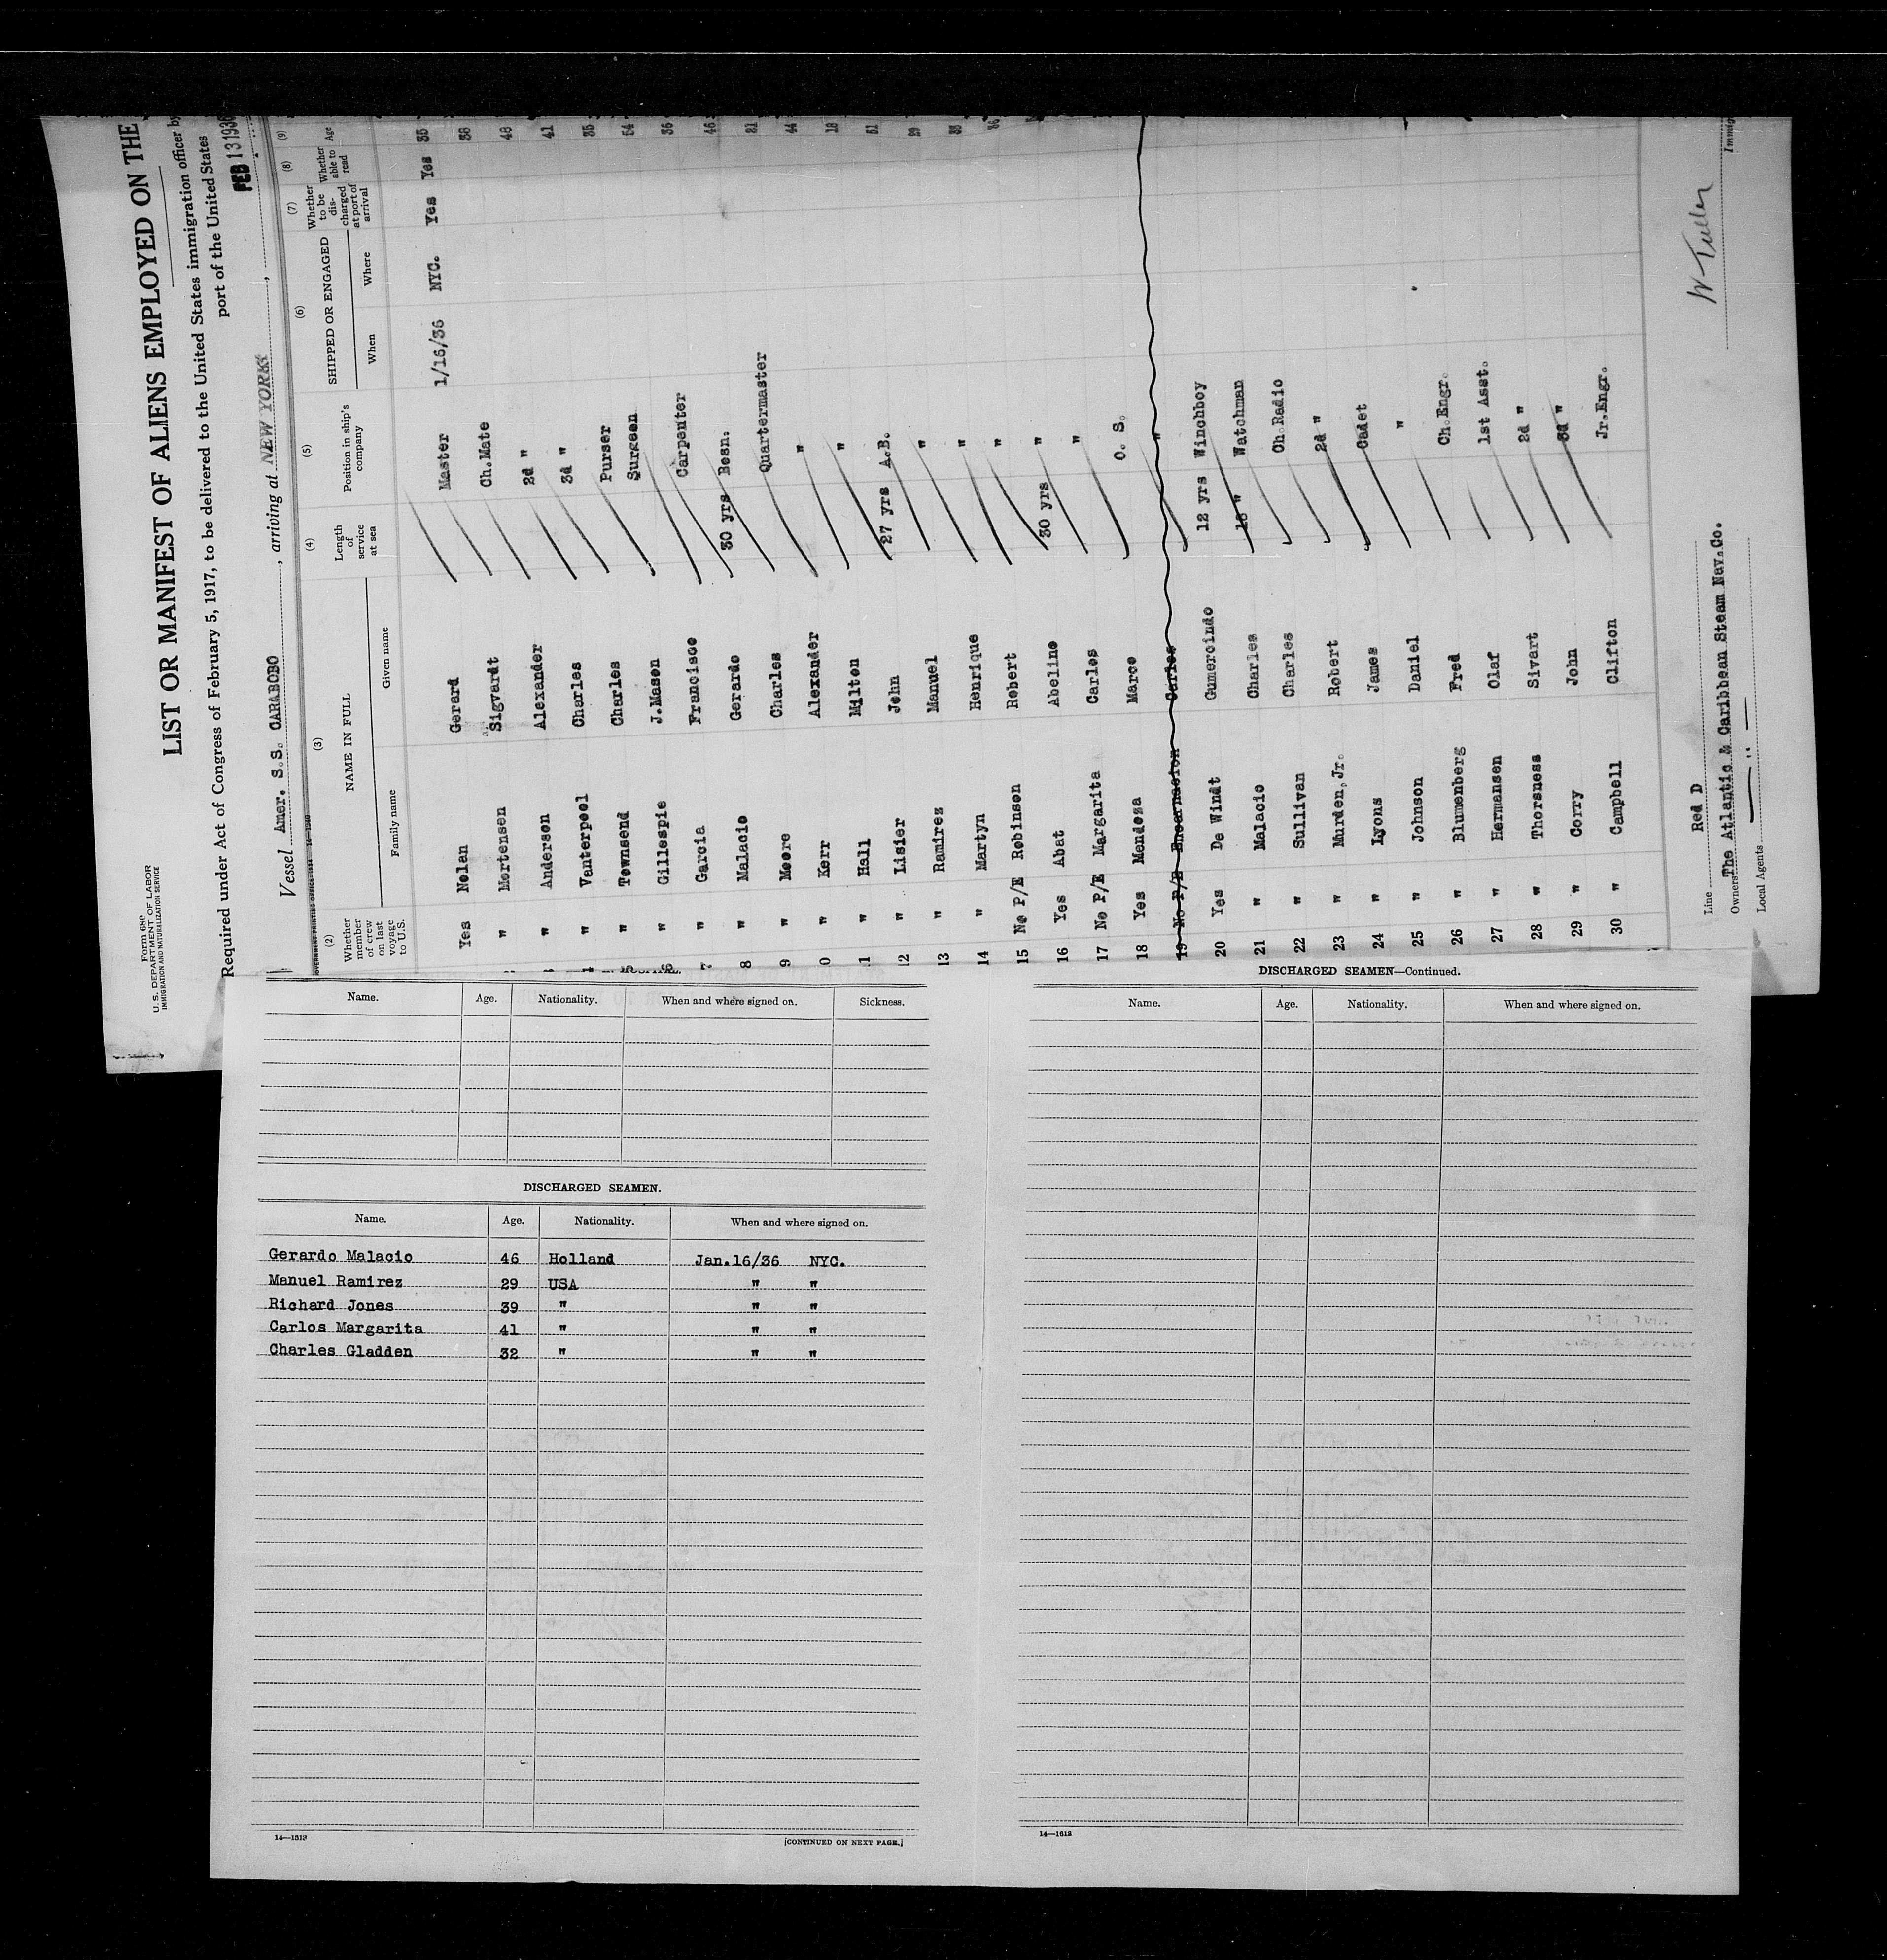 Form 680
U. S. DEPARTMENT OF LABOR
IMMIGRATION AND NATURALIZATION SERVICE
LIST OR MANIFEST OF ALIENS EMPLOYED ON THE
Required under Act of Congress of February 5, 1917, to be delivered to the United States immigration officer by
port of the United States
FEB 13 1936
Vessel Amer. S.S. CARABOBO, arriving at NEW YORK,
(2) (3) (4) (5) (6) (7) (8) (9)
Whether member of crew on last voyage to U.S. NAME IN FULL Length of service at sea Position in ship's company SHIPPED OR ENGAGED Whether to be discharged at port of arrival Whether able to read Age
Family name Given name When Where
Yes Nolan Gerard Master 1/16/36 NYC. Yes Yes 35
" Mortensen Sigvardt Ch.Mate 38
" Anderson Alexander 2d " 48
" Vanterpool Charles 3d " 41
" Townsend Charles Purser 35
6 " Gillespie J.Mason Surgeon 54
7 " Garcia Francisco Carpenter 36
8 " Malacio Gerardo 30 yrs Bosn. 46
9 " Moore Charles Quartermaster 21
0 " Kerr Alexander " 44
11 " Hall Milton " 18
12 " Lisier John 27 yrs A.B. 51
13 " Ramirez Manuel " 29
14 " Martyn Henrique "
15 No P/E Robinson Robert "
16 Yes Abat Abelino 30 yrs "
17 No P/E Margarita Carlos "
18 Yes Mendoza Marco O. S.
19 No P/E Encarnacion Carlos "
20 Yes De Windt Gumercindo 12 yrs Winchboy
21 " Malacio Charles 18 " Watchman
22 " Sullivan Charles Ch.Radio
23 " Murden,Jr. Robert 2d "
24 " Lyons James Cadet
25 " Johnson Daniel "
26 " Blumenberg Fred Ch.Engr.
27 " Hermansen Olaf 1st Asst.
28 " Thorsness Sivart 2d "
29 " Corry John 3d "
30 " Campbell Clifton Jr.Engr.
Line Red D
Owners The Atlantic & Caribbean Steam Nav.Co.
Local Agents — " —
W Tuller
Immig
Name. Age. Nationality. When and where signed on. Sickness.
DISCHARGED SEAMEN.
Name. Age. Nationality. When and where signed on.
Gerardo Malacio 46 Holland Jan.16/36 NYC.
Manuel Ramirez 29 USA " "
Richard Jones 39 " " "
Carlos Margarita 41 " " "
Charles Gladden 32 " " "
14—1513
[CONTINUED ON NEXT PAGE.]
DISCHARGED SEAMEN—Continued.
Name. Age. Nationality. When and where signed on.
14—1513